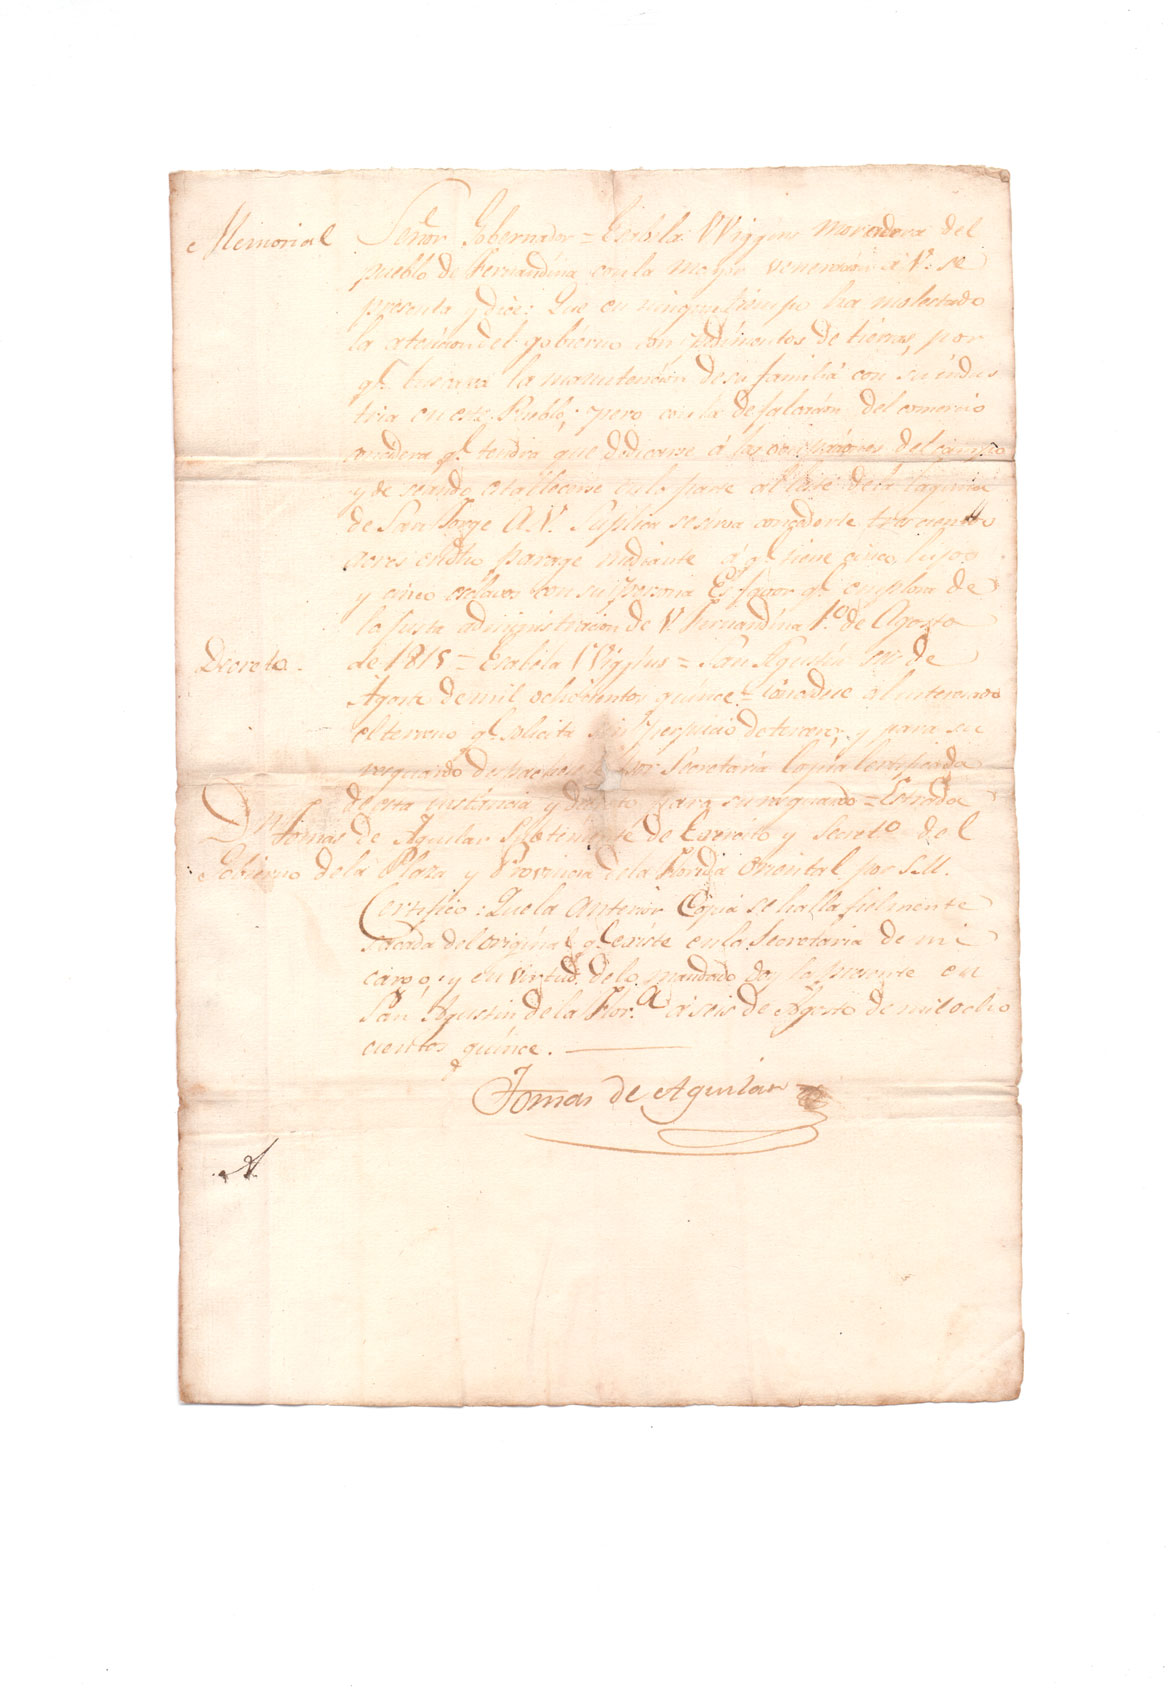 Memorial Señor Gobernador = Isabela Wiggins moradora del
pueblo de Fernandina con la mayor veneracion á V. se
presenta y dice: Que en ningun tiempo ha molestado
la atencion del gobierno con pedimentos de tierras, por
qe. buscava la manutencion de su familia con su indus
tria en este Pueblo; pero con la defalcacion del comercio
qe. tendra que dedicarse á las del campo
y deseando establecerse en la parte al Oeste de la laguna
de San Jorge A.V. Suplica se sirva concederle trescientos
acres en dho parage mediante á qe. tiene cinco hijos
y cinco esclavos con su persona Es favor qe. implora de
la justa administracion de V. Fernandina 1.o de Agosto
Decreto. de 1815 = Isabela Wiggins = San Agustin seis de
Agosto de mil ochocientos quince = Concedese al interesado
el terreno qe. solicita sin perjuicio de tercero; y para su
resguardo despachese por Secretaria Copia Certificada
de esta instancia y decreto para su resguardo = Estrada
Dn. Tomas de Aguilar Subteniente de Exercito y Secreto. del
Gobierno de la Plaza y Provincia de la Florida Oriental por S.M.
Certifico: Que la anterior Copia se halla fielmente
sacada del original qe. existe en la Secretaria de mi
cargo; y en virtud de lo mandado doy la presente en
San Agustin de la Flor.a á seis de Agosto de mil ocho
cientos quince.
Tomas de Aguilar
A